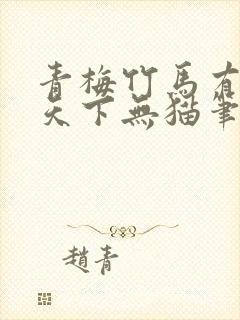 青梅竹馬有
天下無猫筆
趙青